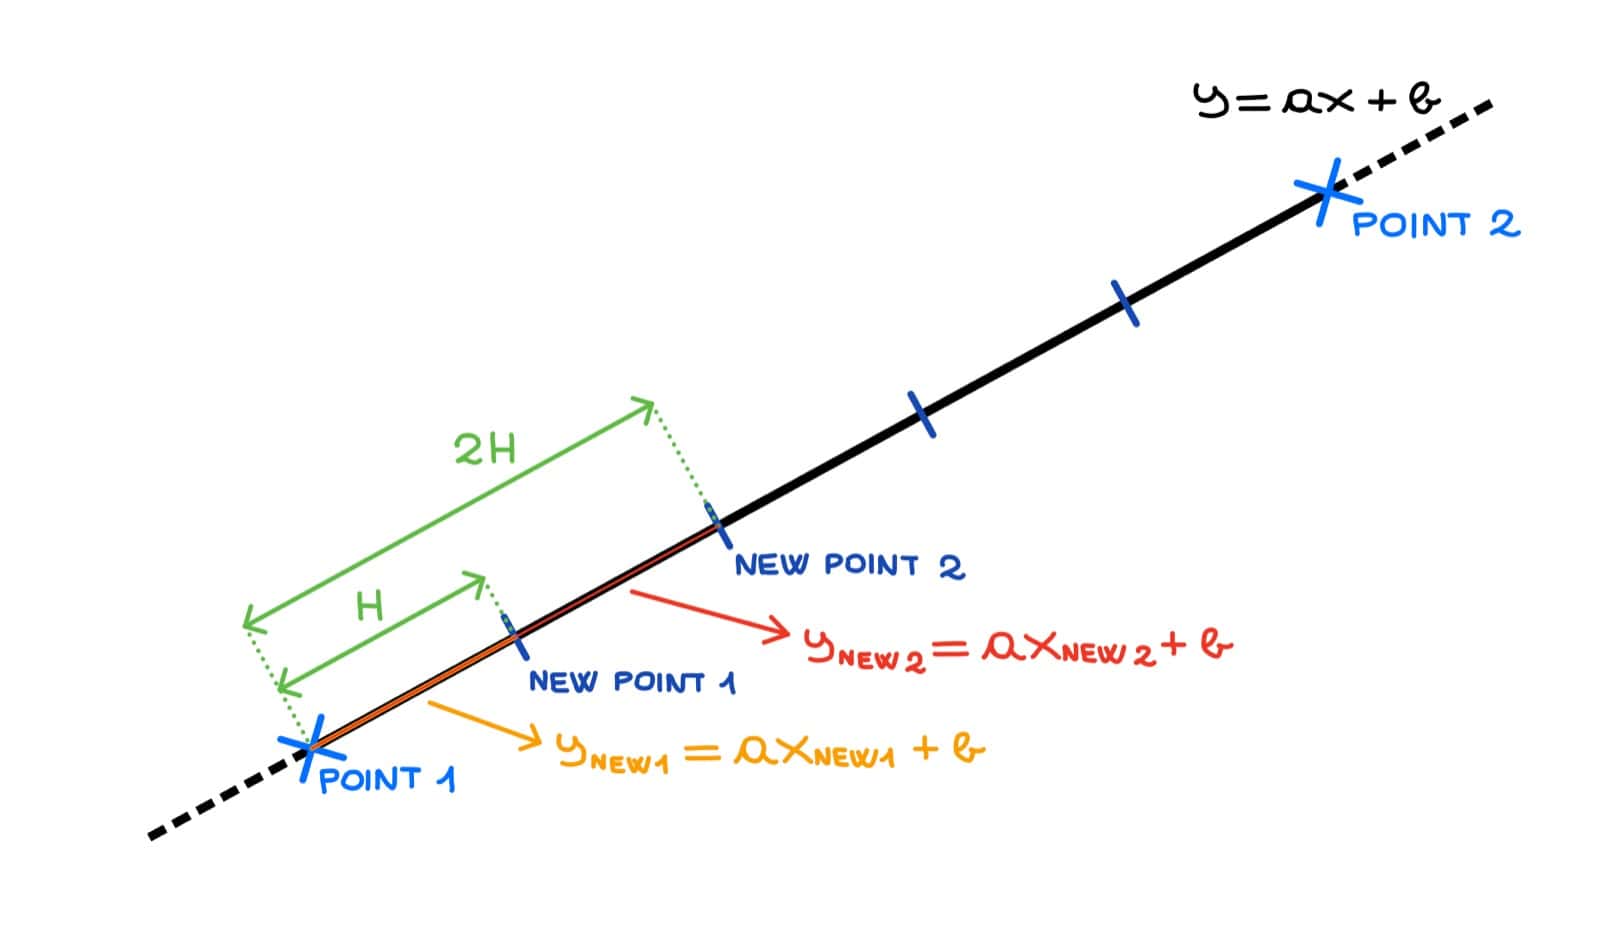 y = ax + b
POINT 2
2H
NEW POINT 2
H
y_NEW2 = ax_NEW2 + b
NEW POINT 1
y_NEW1 = ax_NEW1 + b
POINT 1